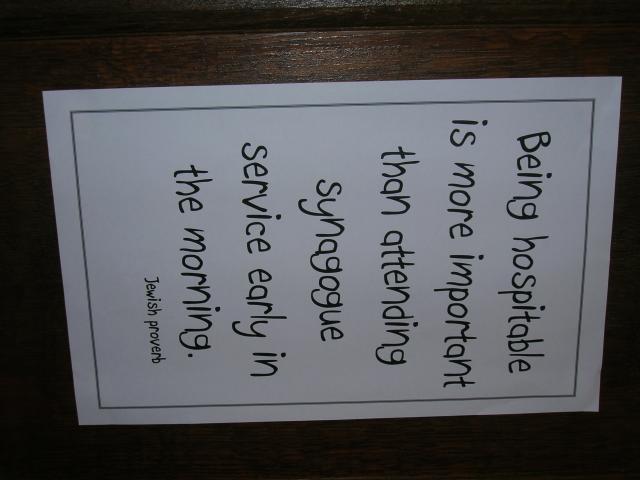 Being hospitable
is more important
than attending
synagogue
service early in
the morning.
Jewish proverb